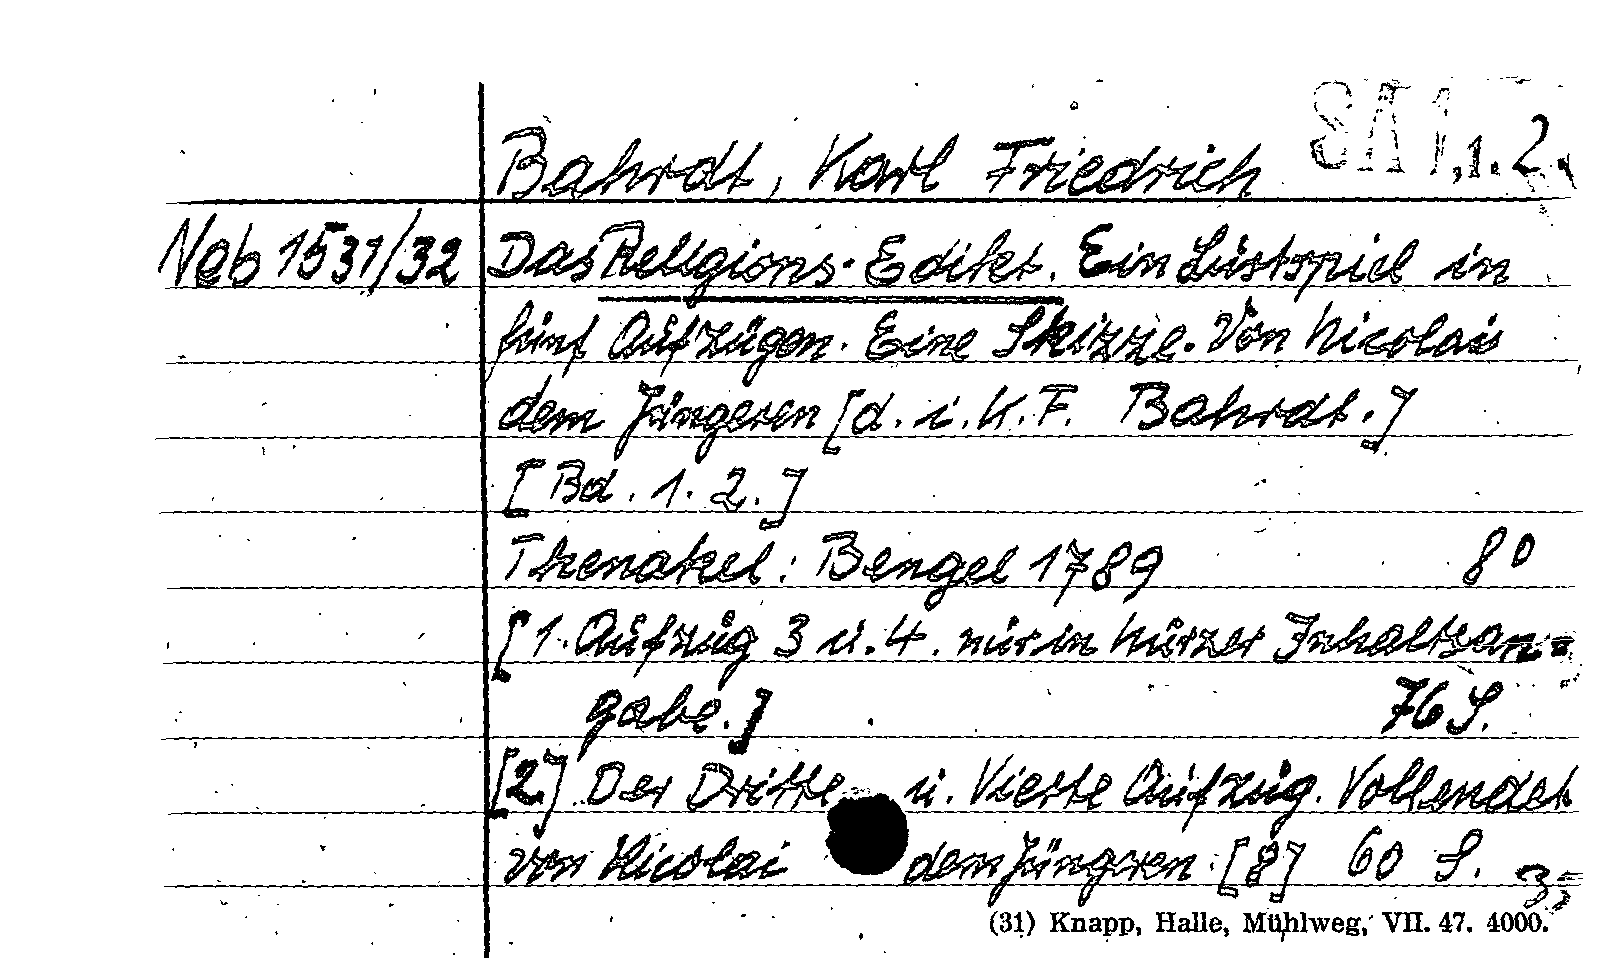 SA 1,1. 2.
Bahrdt, Karl Friedrich
Neb 1531/32 Das Religions-Edikt. Ein Lustspiel in
fünf Aufzügen. Eine Skizze. Von Nicolai
dem Jüngeren [d. i. K. F. Bahrdt.]
[Bd. 1. 2.]
Thenakel: Bengel 1789 8°
[1. Aufzug 3 u. 4. nur in kurzer Inhaltsan=
gabe.] 76 S.
[2] Der Dritte u. Vierte Aufzug. Vollendet
von Nicolai dem Jüngren. [8] 60 S.
(31) Knapp, Halle, Mühlweg, VII. 47. 4000.